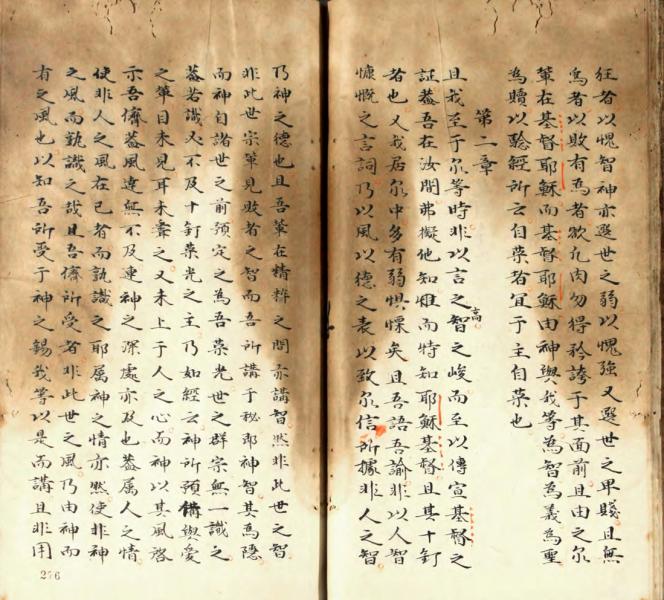 狂者以愧智神亦選世之弱以愧強又選世之卑賤且無
為者以敗有為者欲凢肉勿得矜誇于其面前且由之尔
輩在基督耶穌而基督耶穌由神與我等為智為義為聖
為贖以驗經所云自荣者宜于主自荣也
第二章
且我至于尔等時非以言之智之高峻而至以傳宣基督之
証蓋吾在汝間弗擬他知惟而特知耶穌基督且其十釘
者也又我居尔中多有弱惧慄矣且吾語吾諭非以人智
慷慨之言詞乃以風以德之表以致尔信所據非人之智
乃神之德也且吾輩在精粹之間亦講智然非此世之智
非此世宗輩見敗者之智而吾所講于秘即神智其為隱
而神自諸世之前預定之為吾荣光世之群宗無一識之
蓋若識必不及十釘荣光之主乃如經云神所預備與愛
之輩目未見耳未聽之又未上于人之心而神以其風啓
示吾儕蓋風達無不及連神之深處亦及也蓋属人之情
使非人之風在己者而孰識之耶属神之情亦然使非神
之風而孰識之哉且吾儕所受者非此世之風乃由神而
有之風也以知吾所受于神之錫我等以是而講且非用
276